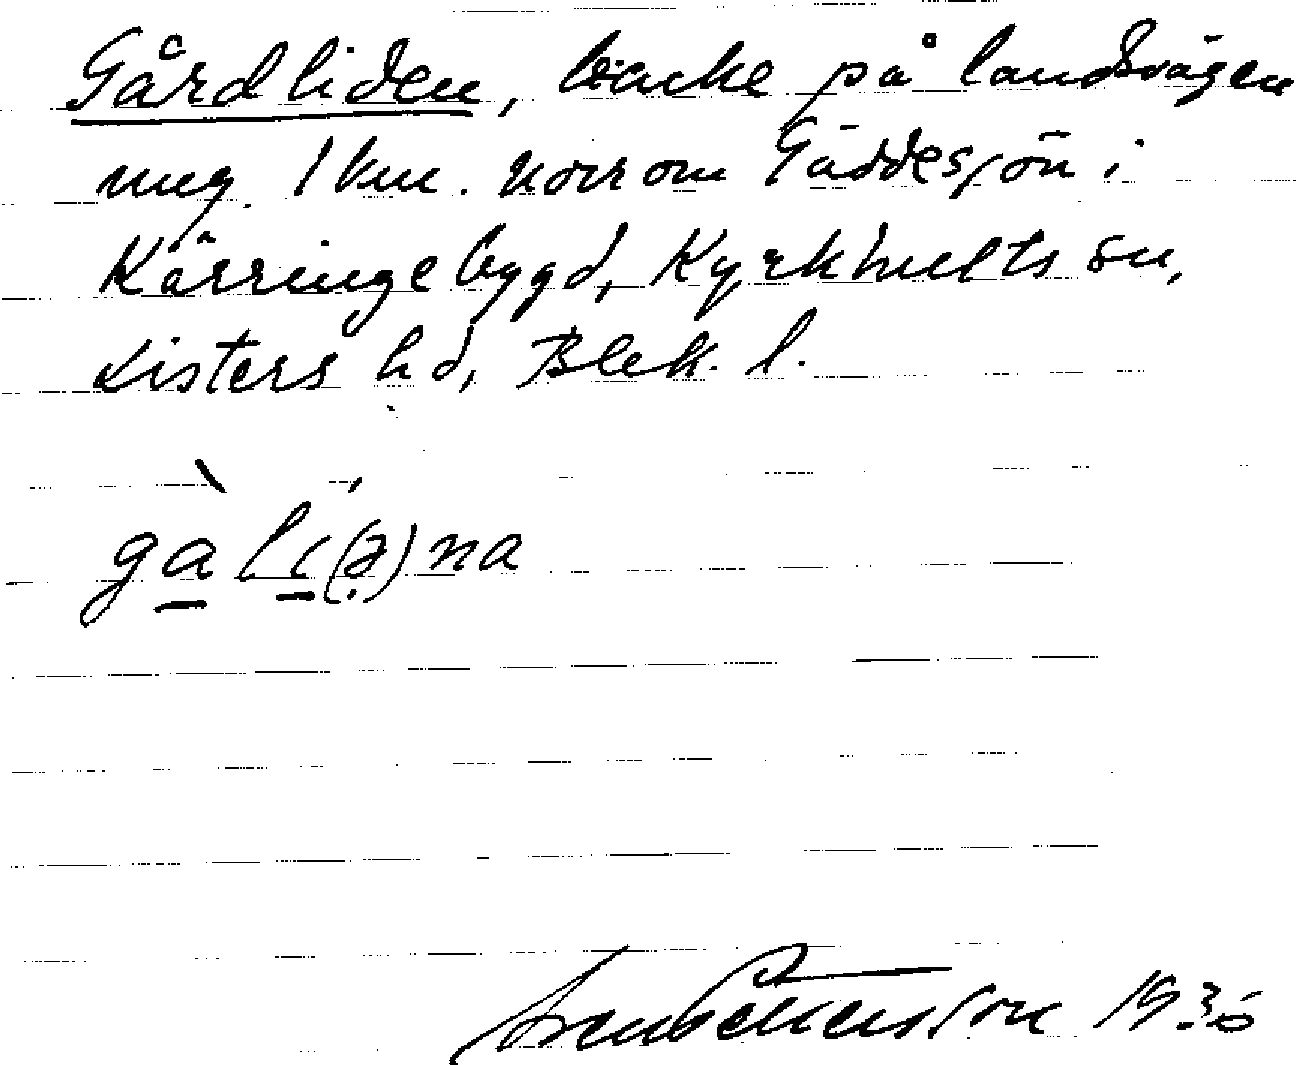 Gårdliden, backe på landsvägen
ung. 1 km. norr om Gäddesjön i
Käringebygd, Kyrkhults sn,
Listers hd, Blek. l.
gàlí(ə)na
1936